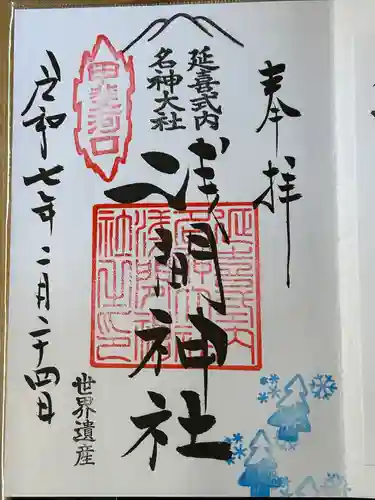 奉拝
延喜式内
名神大社
浅間神社
甲斐河口
令和七年二月二十四日
世界遺産